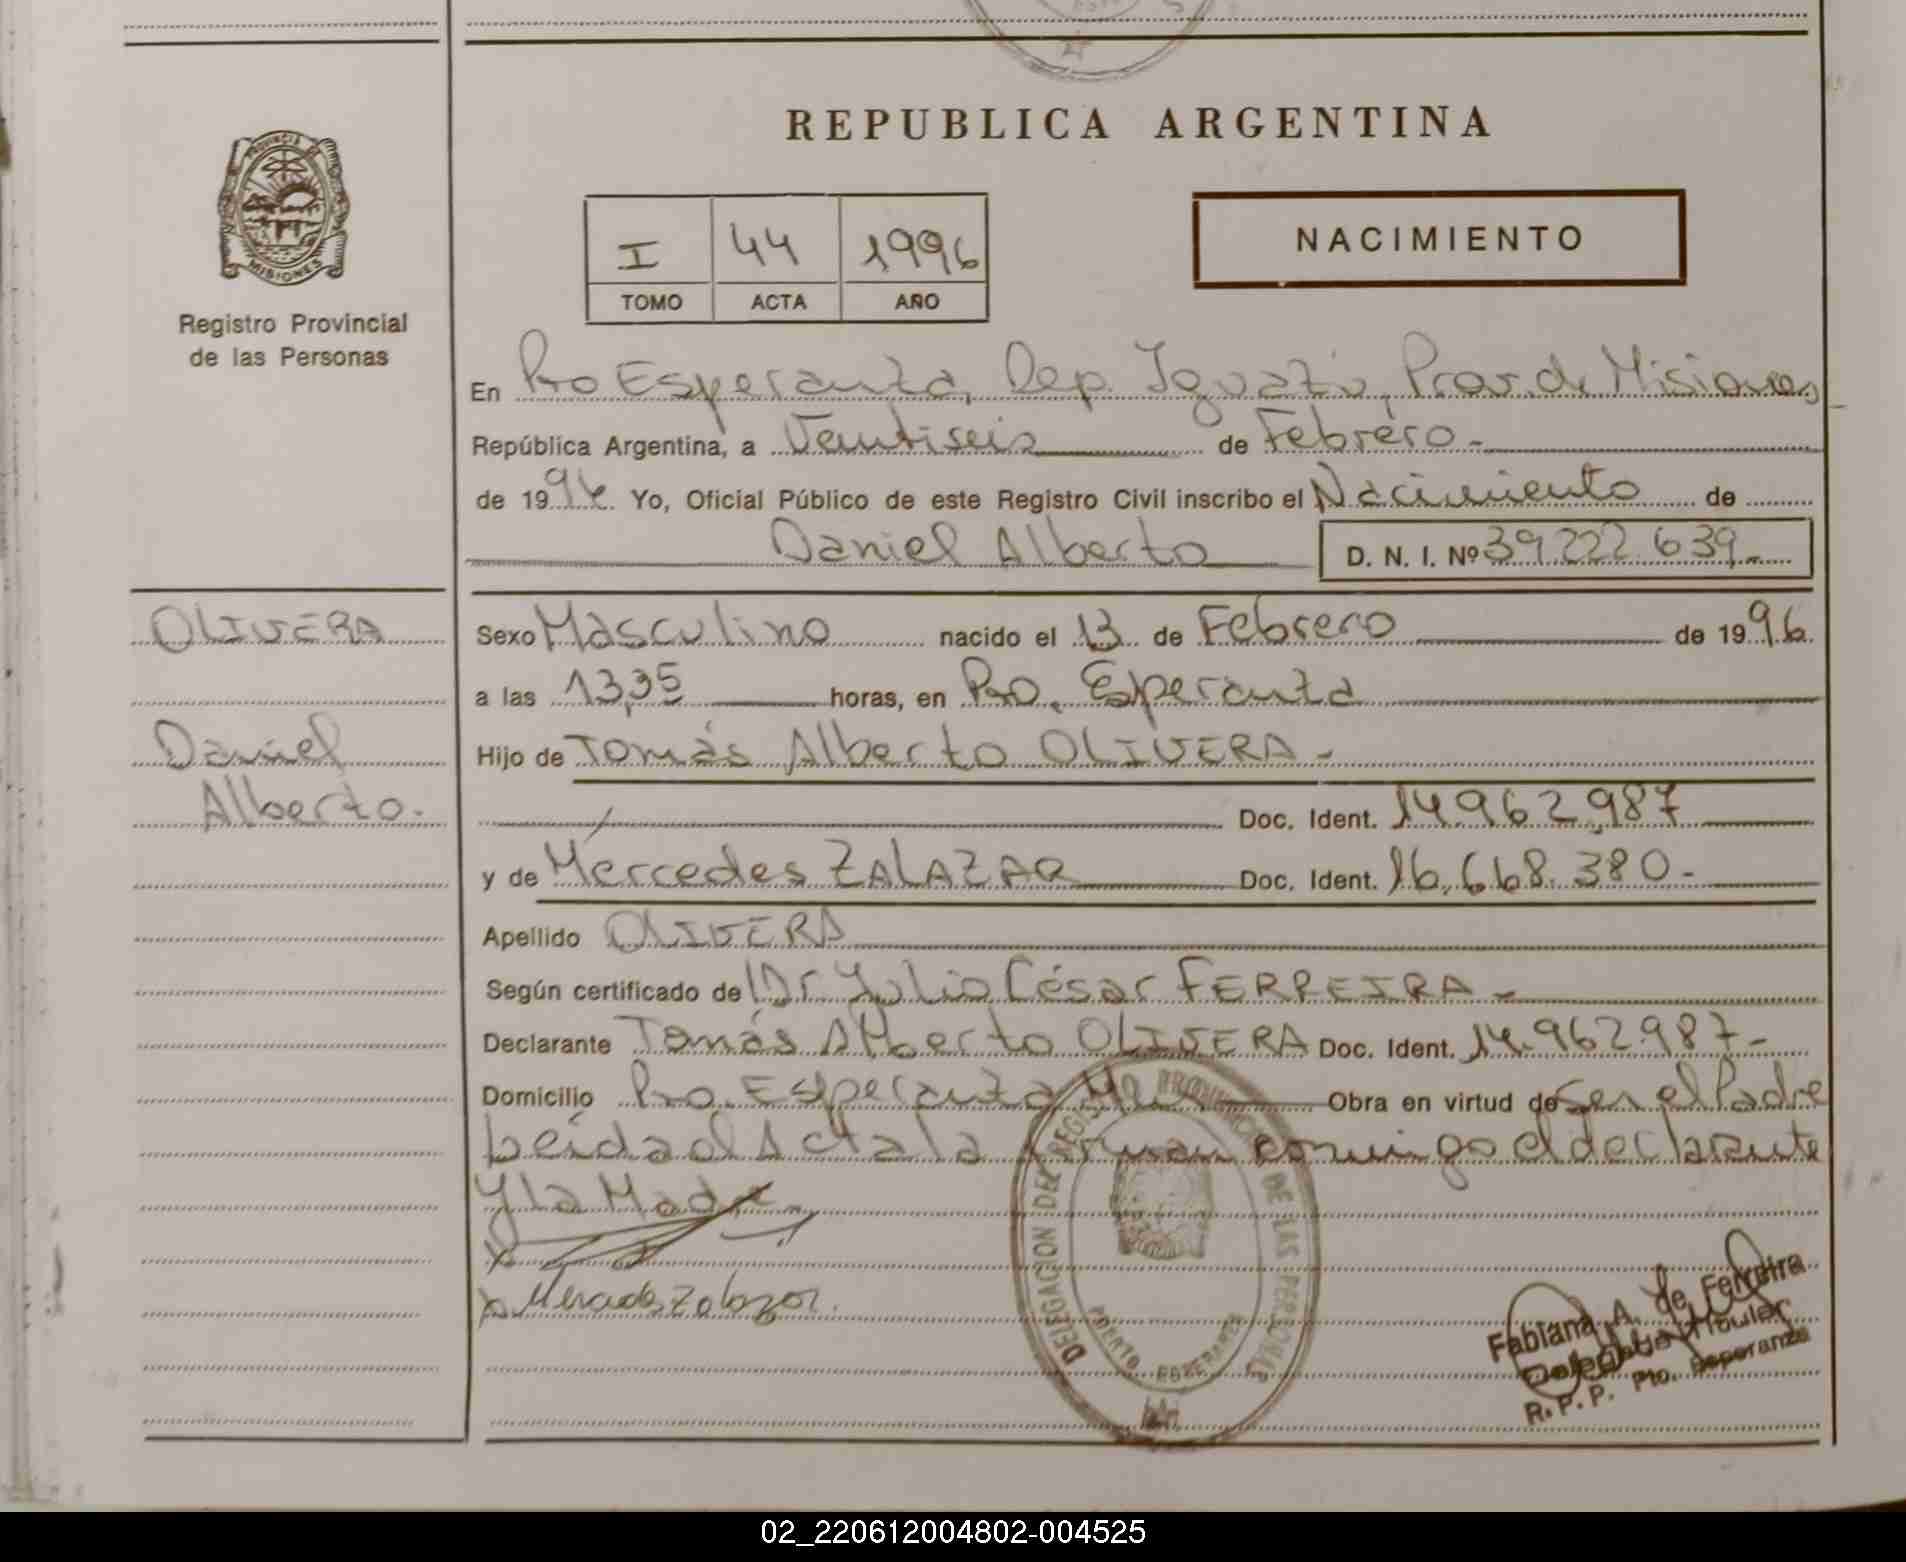 REPUBLICA ARGENTINA
PROVINCIA DE MISIONES
Registro Provincial
de las Personas
I 44 1996
TOMO ACTA AÑO
NACIMIENTO
En Pto Esperanza, Dep. Iguazú, Prov. de Misiones
República Argentina, a Veintiseis de Febrero.-
de 1996 Yo, Oficial Público de este Registro Civil inscribo el Nacimiento de
Daniel Alberto D. N. I. Nº 39.222.639.-
OLIVERA
Daniel
Alberto.-
Sexo Masculino nacido el 13 de Febrero de 1996.
a las 13,35 horas, en Pto. Esperanza
Hijo de Tomás Alberto OLIVERA.-
Doc. Ident. 14.962.987
y de Mercedes ZALAZAR Doc. Ident. 16.668.380.-
Apellido OLIVERA
Según certificado de Dr. Julio César FERREIRA.-
Declarante Tomás Alberto OLIVERA Doc. Ident. 14.962.987.-
Domicilio Pto. Esperanza Obra en virtud de Ser el Padre
Leida el Acta la firman conmigo el declarante
y la Madre.-
Mercedes Zalazar.
DELEGACION DEL REGISTRO PROVINCIAL DE LAS PERSONAS
PUERTO ESPERANZA
Fabiana A. de Ferreira
Delegada Titular
R. P. P. Pto. Esperanza
02_220612004802-004525